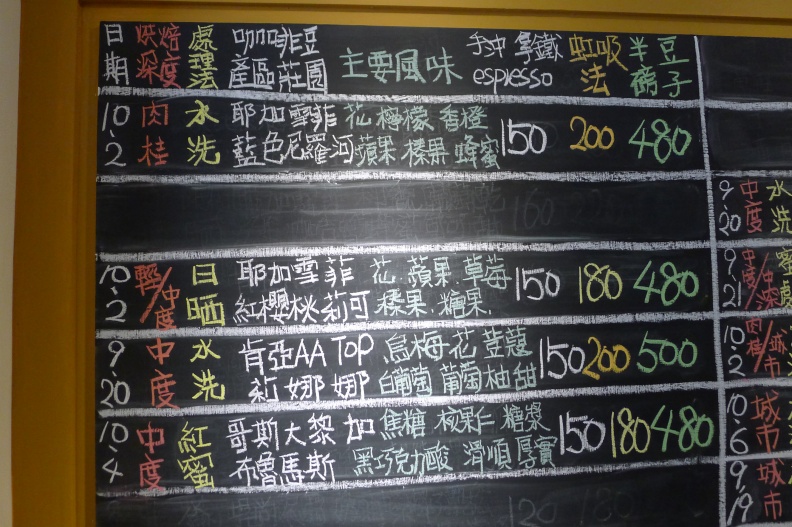 日期 烘焙深度 處理法 咖啡豆產區莊園 主要風味 手沖 拿鐵 espresso 虹吸法 半磅豆子
10.2 肉桂 水洗 耶加雪菲 藍色尼羅河 花 檸檬 香橙 蘋果 榛果 蜂蜜 150 200 480
10.2 輕/中度 日晒 耶加雪菲 紅櫻桃莉可 花.蘋果.草莓 榛果.糖果. 150 180 480
9.20 中度 水洗 肯亞AA TOP 莉娜娜 烏梅 花 荳蔻 白葡萄 葡萄柚 甜 150 200 500
10.4 中度 紅蜜 哥斯大黎加 布魯馬斯 焦糖 核果仁 糖漿 黑巧克力酸 滑順厚實 150 180 480
9.20 中度 水洗
9.21 中度/中深
10.2 肉桂/城市
10.6 城市
9.19 城市